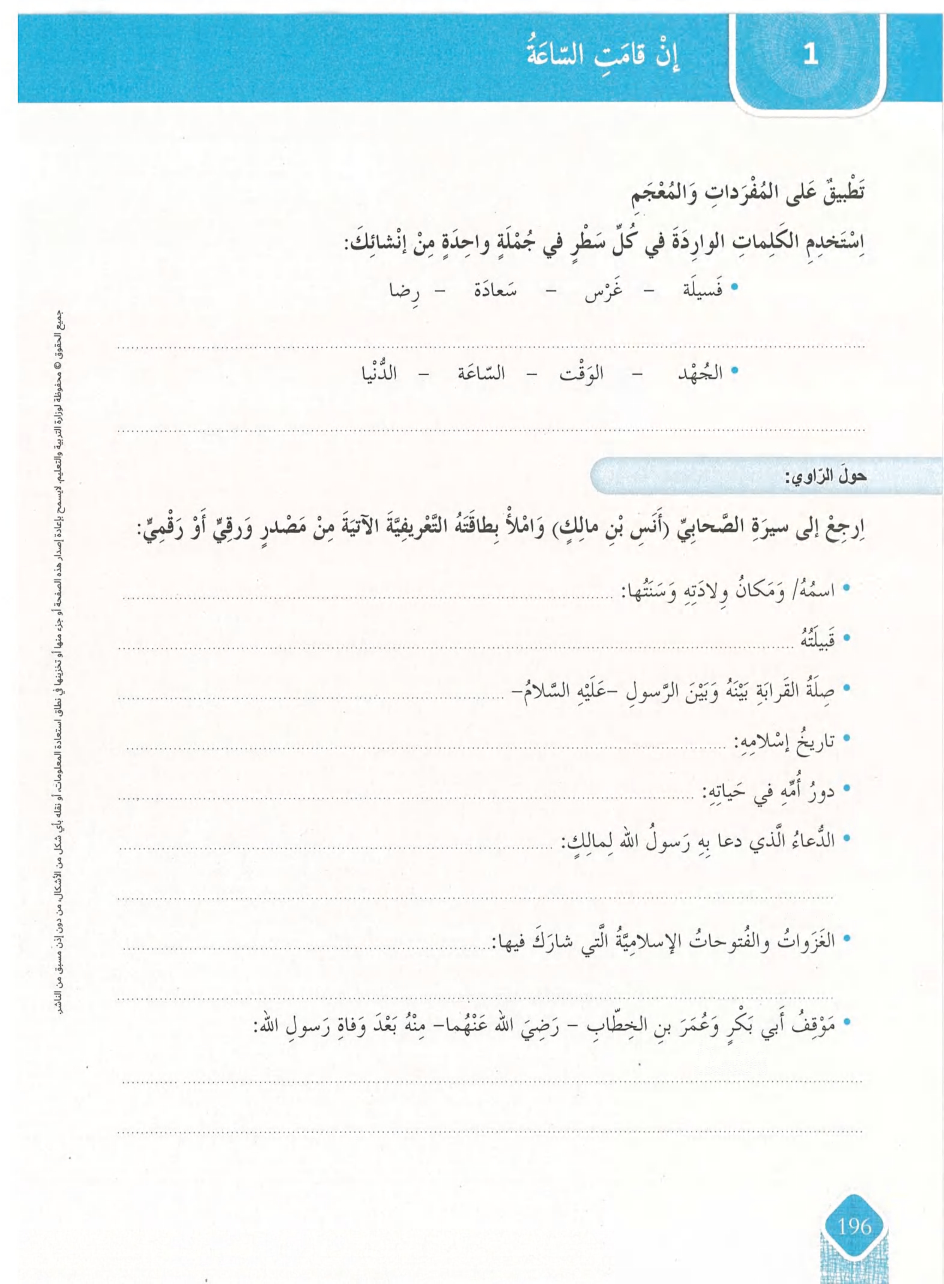 1
إنْ قامَتِ السّاعَةُ
تَطْبيقٌ عَلى المُفْرَداتِ وَالمُعْجَمِ
اِسْتَخدِمِ الكَلِماتِ الوارِدَةَ في كُلِّ سَطْرٍ في جُمْلَةٍ واحِدَةٍ مِنْ إنْشائِكَ:
• فَسيلَة – غَرْس – سَعادَة – رِضا
• الجُهْد – الوَقْت – السّاعَة – الدُّنْيا
حولَ الرّاوي:
اِرجِعْ إلى سيرَةِ الصَّحابيِّ (أَنَسِ بْنِ مالِكٍ) وَامْلأْ بِطاقَتَهُ التَّعْريفيَّةَ الآتيَةَ مِنْ مَصْدرٍ وَرقِيٍّ أَوْ رَقْمِيٍّ:
• اسمُهُ/ وَمَكانُ وِلادَتِهِ وَسَنَتُها:
• قَبيلَتُهُ
• صِلَةُ القَرابَةِ بَيْنَهُ وَبَيْنَ الرَّسولِ –عَلَيْهِ السَّلامُ–
• تاريخُ إسْلامِهِ:
• دورُ أُمِّهِ في حَياتِهِ:
• الدُّعاءُ الَّذي دعا بِهِ رَسولُ الله لِمالِكٍ:
• الغَزَواتُ والفُتوحاتُ الإسلاميَّةُ الَّتي شارَكَ فيها:
• مَوْقِفُ أَبي بَكْرٍ وَعُمَرَ بنِ الخِطّابِ – رَضِيَ الله عَنْهُما– مِنْهُ بَعْدَ وَفاةِ رَسولِ الله:
جميع الحقوق © محفوظة لوزارة التربية والتعليم. لايسمح بإعادة إصدار هذه الصفحة أو جزء منها أو تخزينها في نطاق استعادة المعلومات، أو نقله بأي شكل من الأشكال، من دون إذن مسبق من الناشر.
196